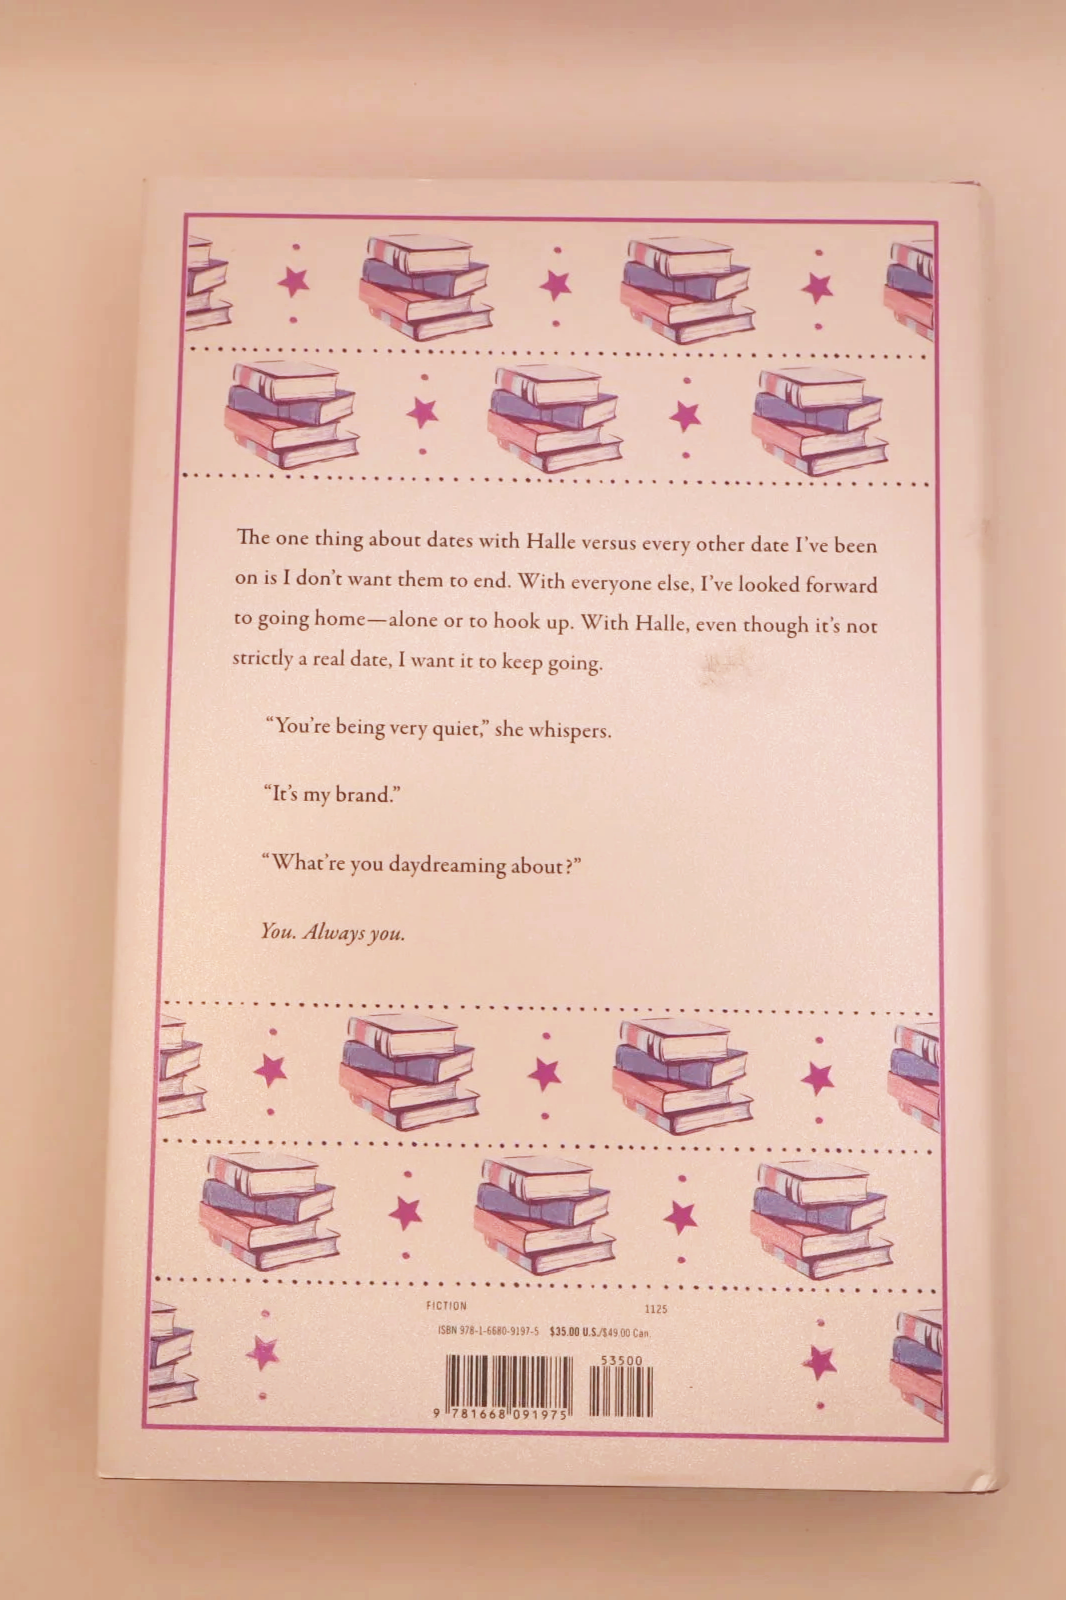 The one thing about dates with Halle versus every other date I’ve been
on is I don’t want them to end. With everyone else, I’ve looked forward
to going home—alone or to hook up. With Halle, even though it’s not
strictly a real date, I want it to keep going.
“You’re being very quiet,” she whispers.
“It’s my brand.”
“What’re you daydreaming about?”
You. Always you.
FICTION 1125
ISBN 978-1-6680-9197-5 $35.00 U.S./$49.00 Can.
53500
9 781668 091975